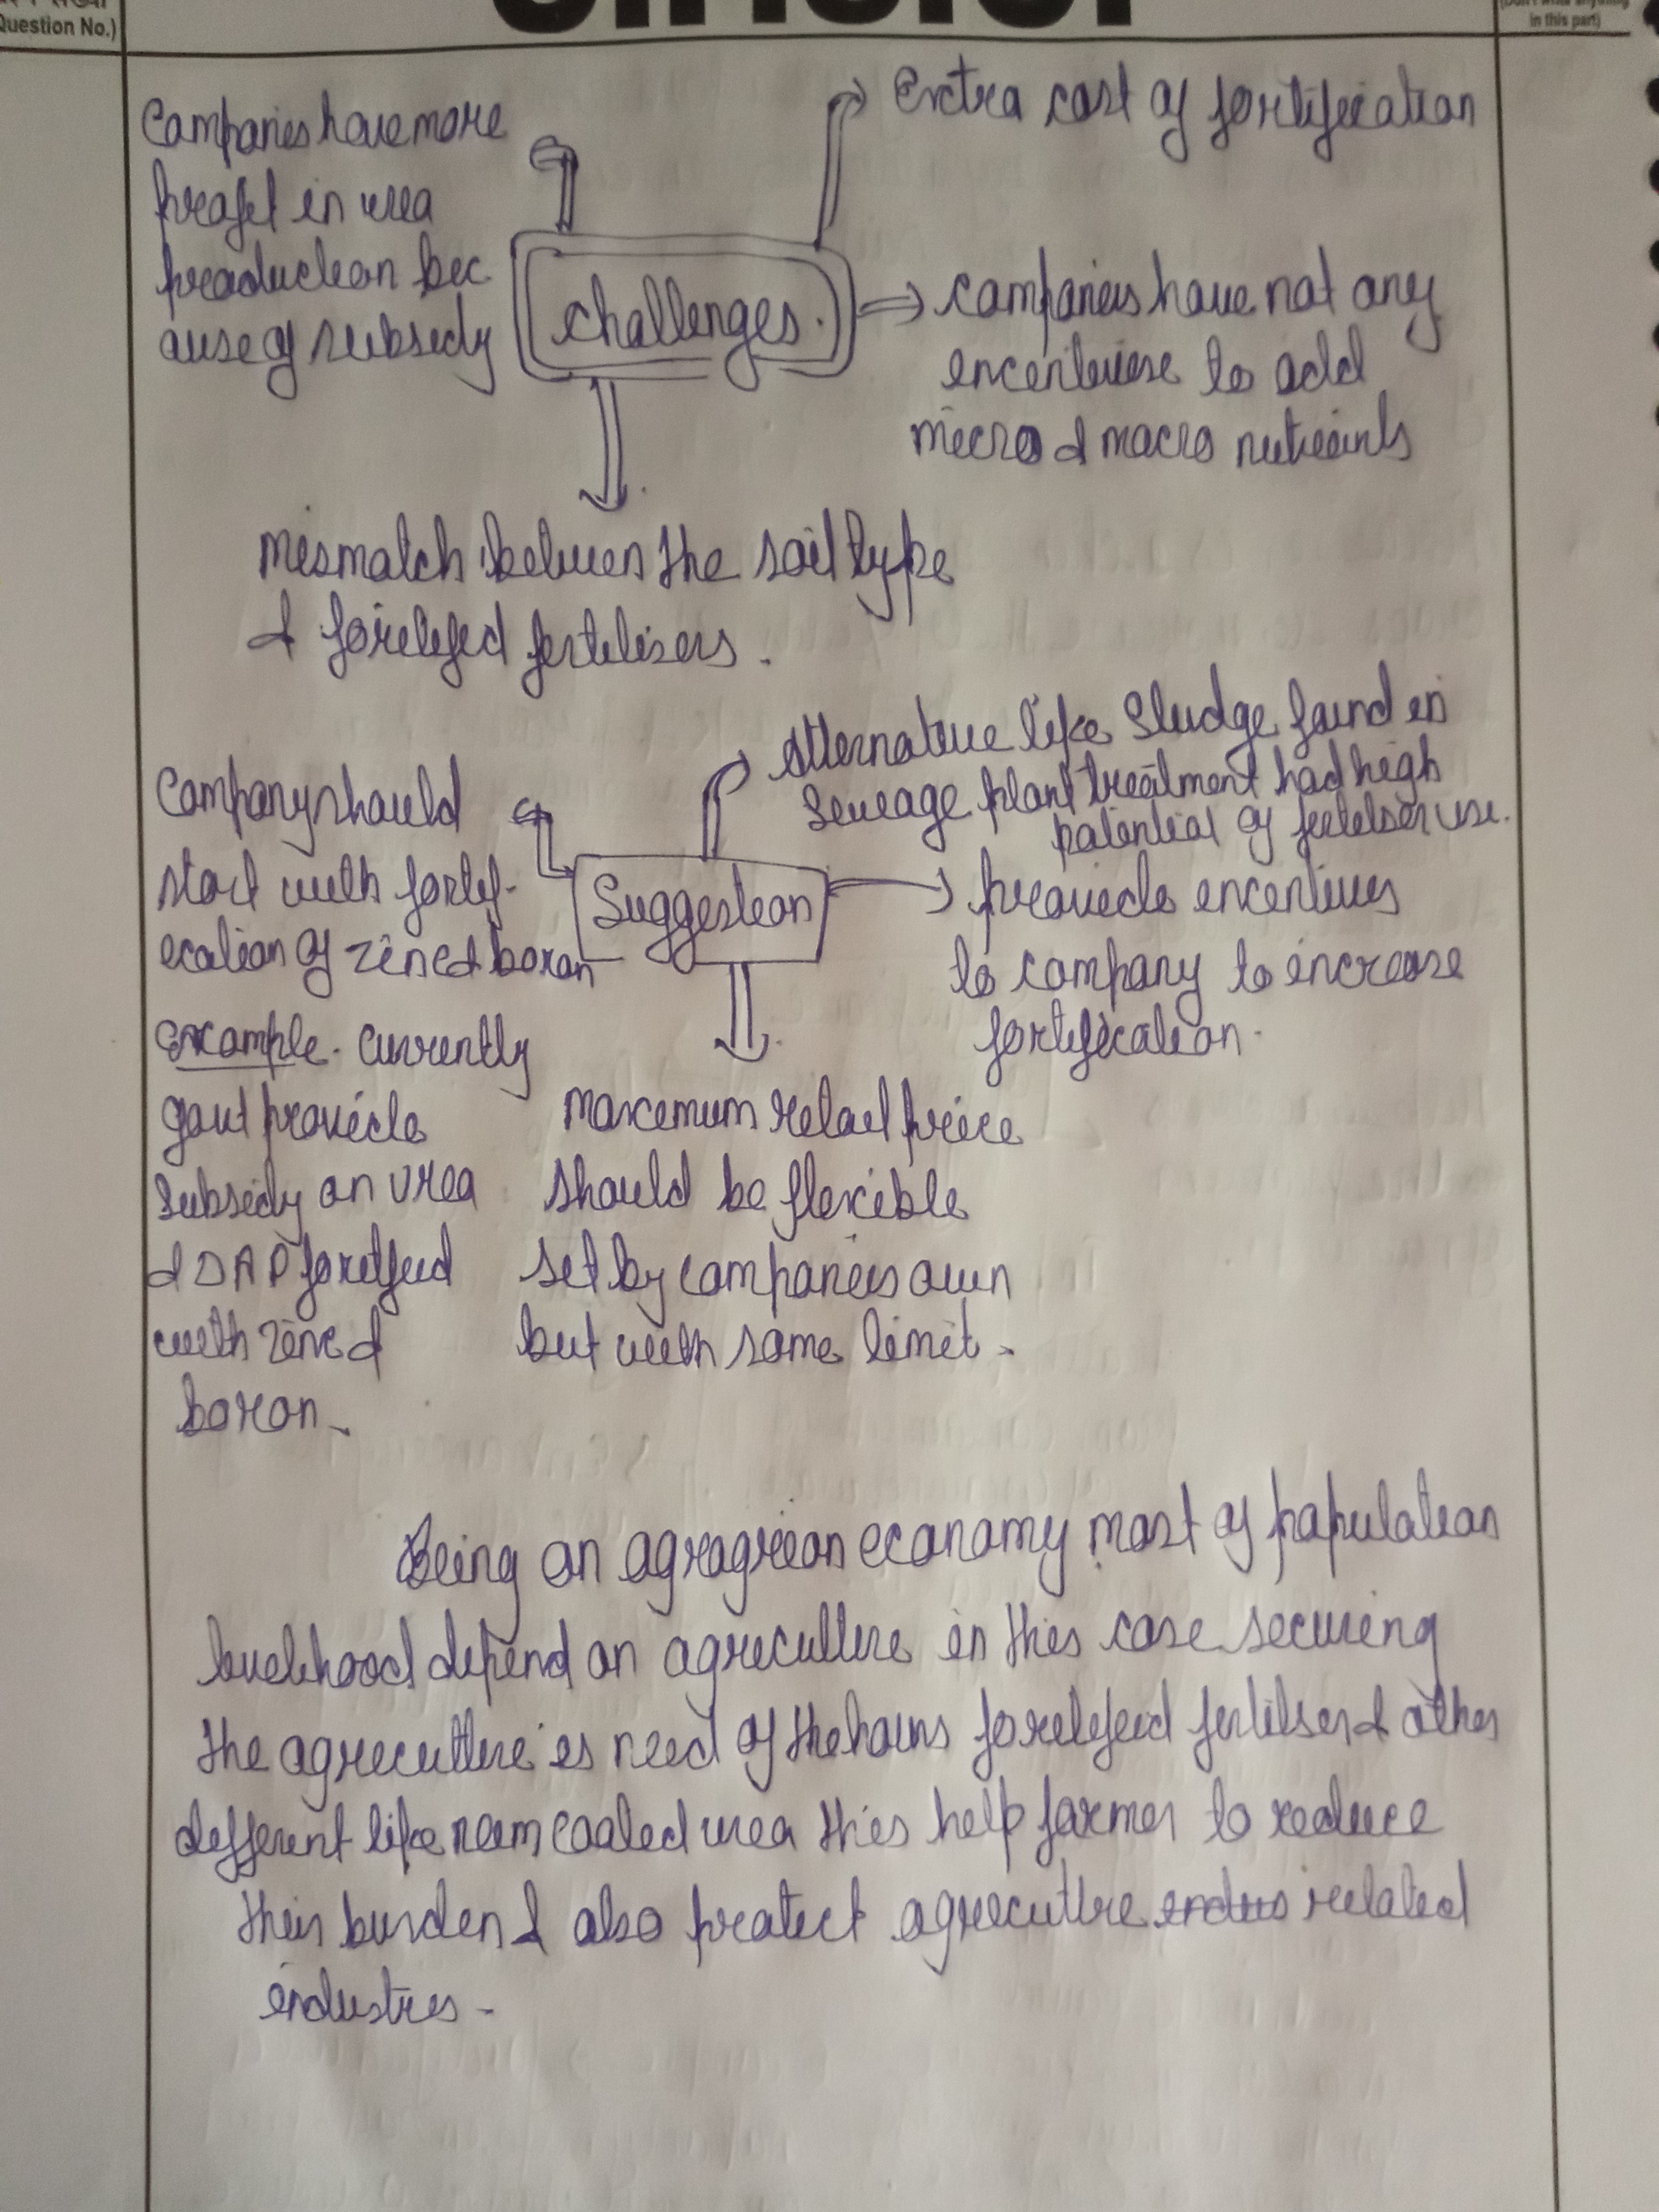 Question No.)
in this part)
Extra cost of fortification
Companies have more
profit in urea
production bec
ause of subsidy
challenges.
companies have not any
incentivise to add
micro & macro nutrients
Mismatch between the soil type
& foretified fertilisers.
Alternative like Sludge found in
Sewage plant treatment had high
potential of fertilser use.
Company should
start with fortif-
ication of zinc & boron
Suggestion
provide incentives
to company to increase
fortification.
Example. currently
govt provide
subsidy on urea
& DAP foretified
with zinc &
boron.
Maximum retail price
should be flexible
set by companies own
but with some limit.
Being an agragrian economy most of population
livelihood depend on agriculture in this case securing
the agriculture is need of the hours foretified fertilser & other
different like neem coated urea this help farmer to reduce
their burden & also protect agriculture related
industries.